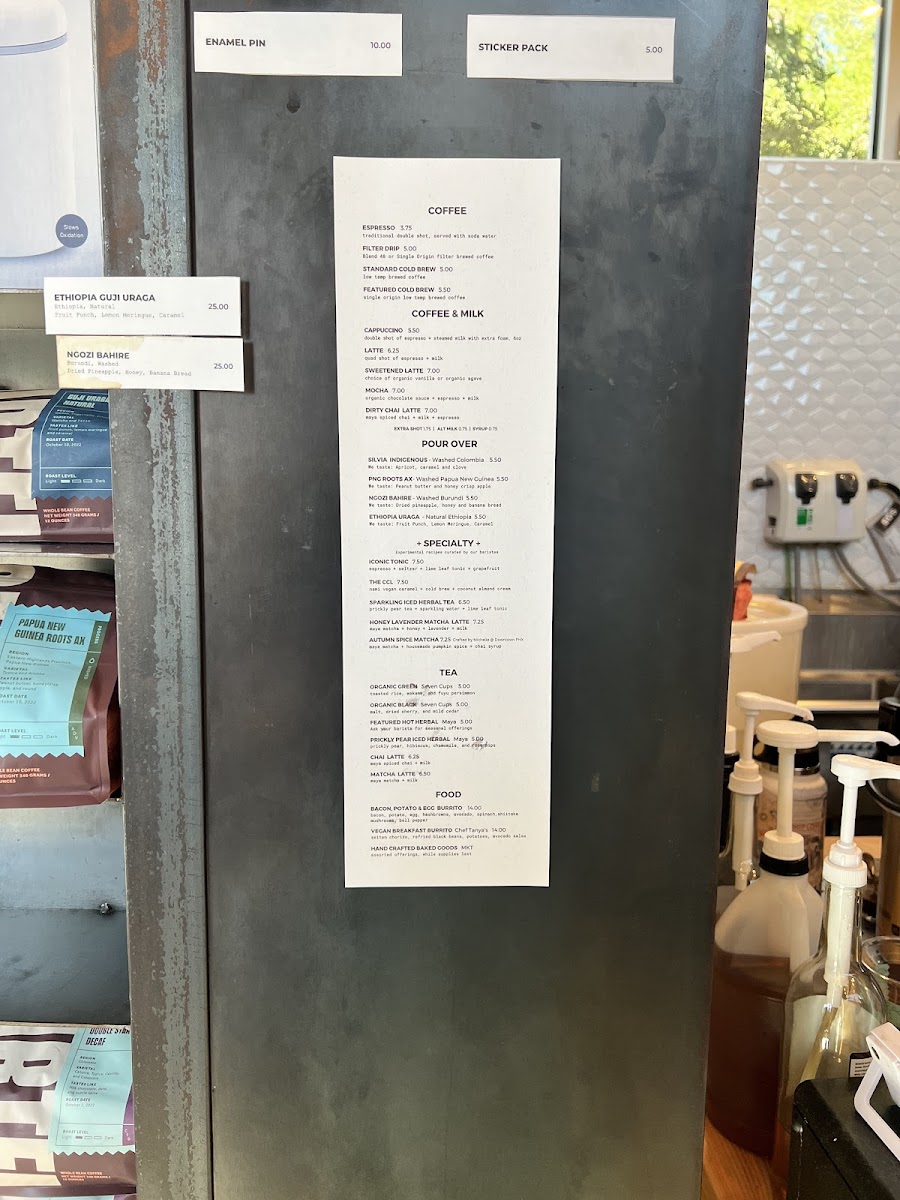 ENAMEL PIN 10.00
STICKER PACK 5.00
Slows
Oxidation
ETHIOPIA GUJI URAGA 25.00
Ethiopia, Natural
Fruit Punch, Lemon Meringue, Caramel
NGOZI BAHIRE 25.00
Burundi, Washed
Dried Pineapple, Honey, Banana Bread
COFFEE
ESPRESSO 3.75
traditional double shot, served with soda water
FILTER DRIP 5.00
Blend 48 or Single Origin filter brewed coffee
STANDARD COLD BREW 5.00
low temp brewed coffee
FEATURED COLD BREW 5.50
single origin low temp brewed coffee
COFFEE & MILK
CAPPUCCINO 5.50
double shot of espresso + steamed milk with extra foam, 6oz
LATTE 6.25
quad shot of espresso + milk
SWEETENED LATTE 7.00
choice of organic vanilla or organic agave
MOCHA 7.00
organic chocolate sauce + espresso + milk
DIRTY CHAI LATTE 7.00
maya spiced chai + milk + espresso
EXTRA SHOT 1.75 | ALT MILK 0.75 | SYRUP 0.75
POUR OVER
SILVIA INDIGENOUS - Washed Colombia 5.50
We taste: Apricot, caramel and clove
PNG ROOTS AX- Washed Papua New Guinea 5.50
We taste: Peanut butter and honey crisp apple
NGOZI BAHIRE - Washed Burundi 5.50
We taste: Dried pineapple, honey and banana bread
ETHIOPIA URAGA - Natural Ethiopia 5.50
We taste: Fruit Punch, Lemon Meringue, Caramel
+ SPECIALTY +
Experimental recipes curated by our baristas
ICONIC TONIC 7.50
espresso + seltzer + lime leaf tonic + grapefruit
THE CCL 7.50
nami vegan caramel + cold brew + coconut almond cream
SPARKLING ICED HERBAL TEA 6.50
prickly pear tea + sparkling water + lime leaf tonic
HONEY LAVENDER MATCHA LATTE 7.25
maya matcha + honey + lavender + milk
AUTUMN SPICE MATCHA 7.25 Crafted by Michelle @ Downtown PHX
maya matcha + housemade pumpkin spice + chai syrup
TEA
ORGANIC GREEN Seven Cups 5.00
toasted rice, wakame, and fuyu persimmon
ORGANIC BLACK Seven Cups 5.00
malt, dried cherry, and mild cedar
FEATURED HOT HERBAL Maya 5.00
Ask your barista for seasonal offerings
PRICKLY PEAR ICED HERBAL Maya 5.00
prickly pear, hibiscus, chamomile, and rosehips
CHAI LATTE 6.25
maya spiced chai + milk
MATCHA LATTE 6.50
maya matcha + milk
FOOD
BACON, POTATO & EGG BURRITO 14.00
bacon, potato, egg, hashbrowns, avocado, spinach, shiitake
mushrooms, bell pepper
VEGAN BREAKFAST BURRITO Chef Tanya's 14.00
seitan chorizo, refried black beans, potatoes, avocado salsa
HAND CRAFTED BAKED GOODS MKT
assorted offerings, while supplies last
GUJI URAGA
NATURAL
REGION
VARIETAL
TASTES LIKE
ROAST DATE
ROAST LEVEL
Light Dark
WHOLE BEAN COFFEE
NET WEIGHT 340 GRAMS /
12 OUNCES
PAPUA NEW
GUINEA ROOTS AX
REGION
Eastern Highlands Province,
Papua New Guinea
VARIETAL
TASTES LIKE
ROAST DATE
Dark
DOUBLE STAR
DECAF
REGION
VARIETAL
TASTES LIKE
ROAST DATE
ROAST LEVEL
Light Dark
WHOLE BEAN COFFEE